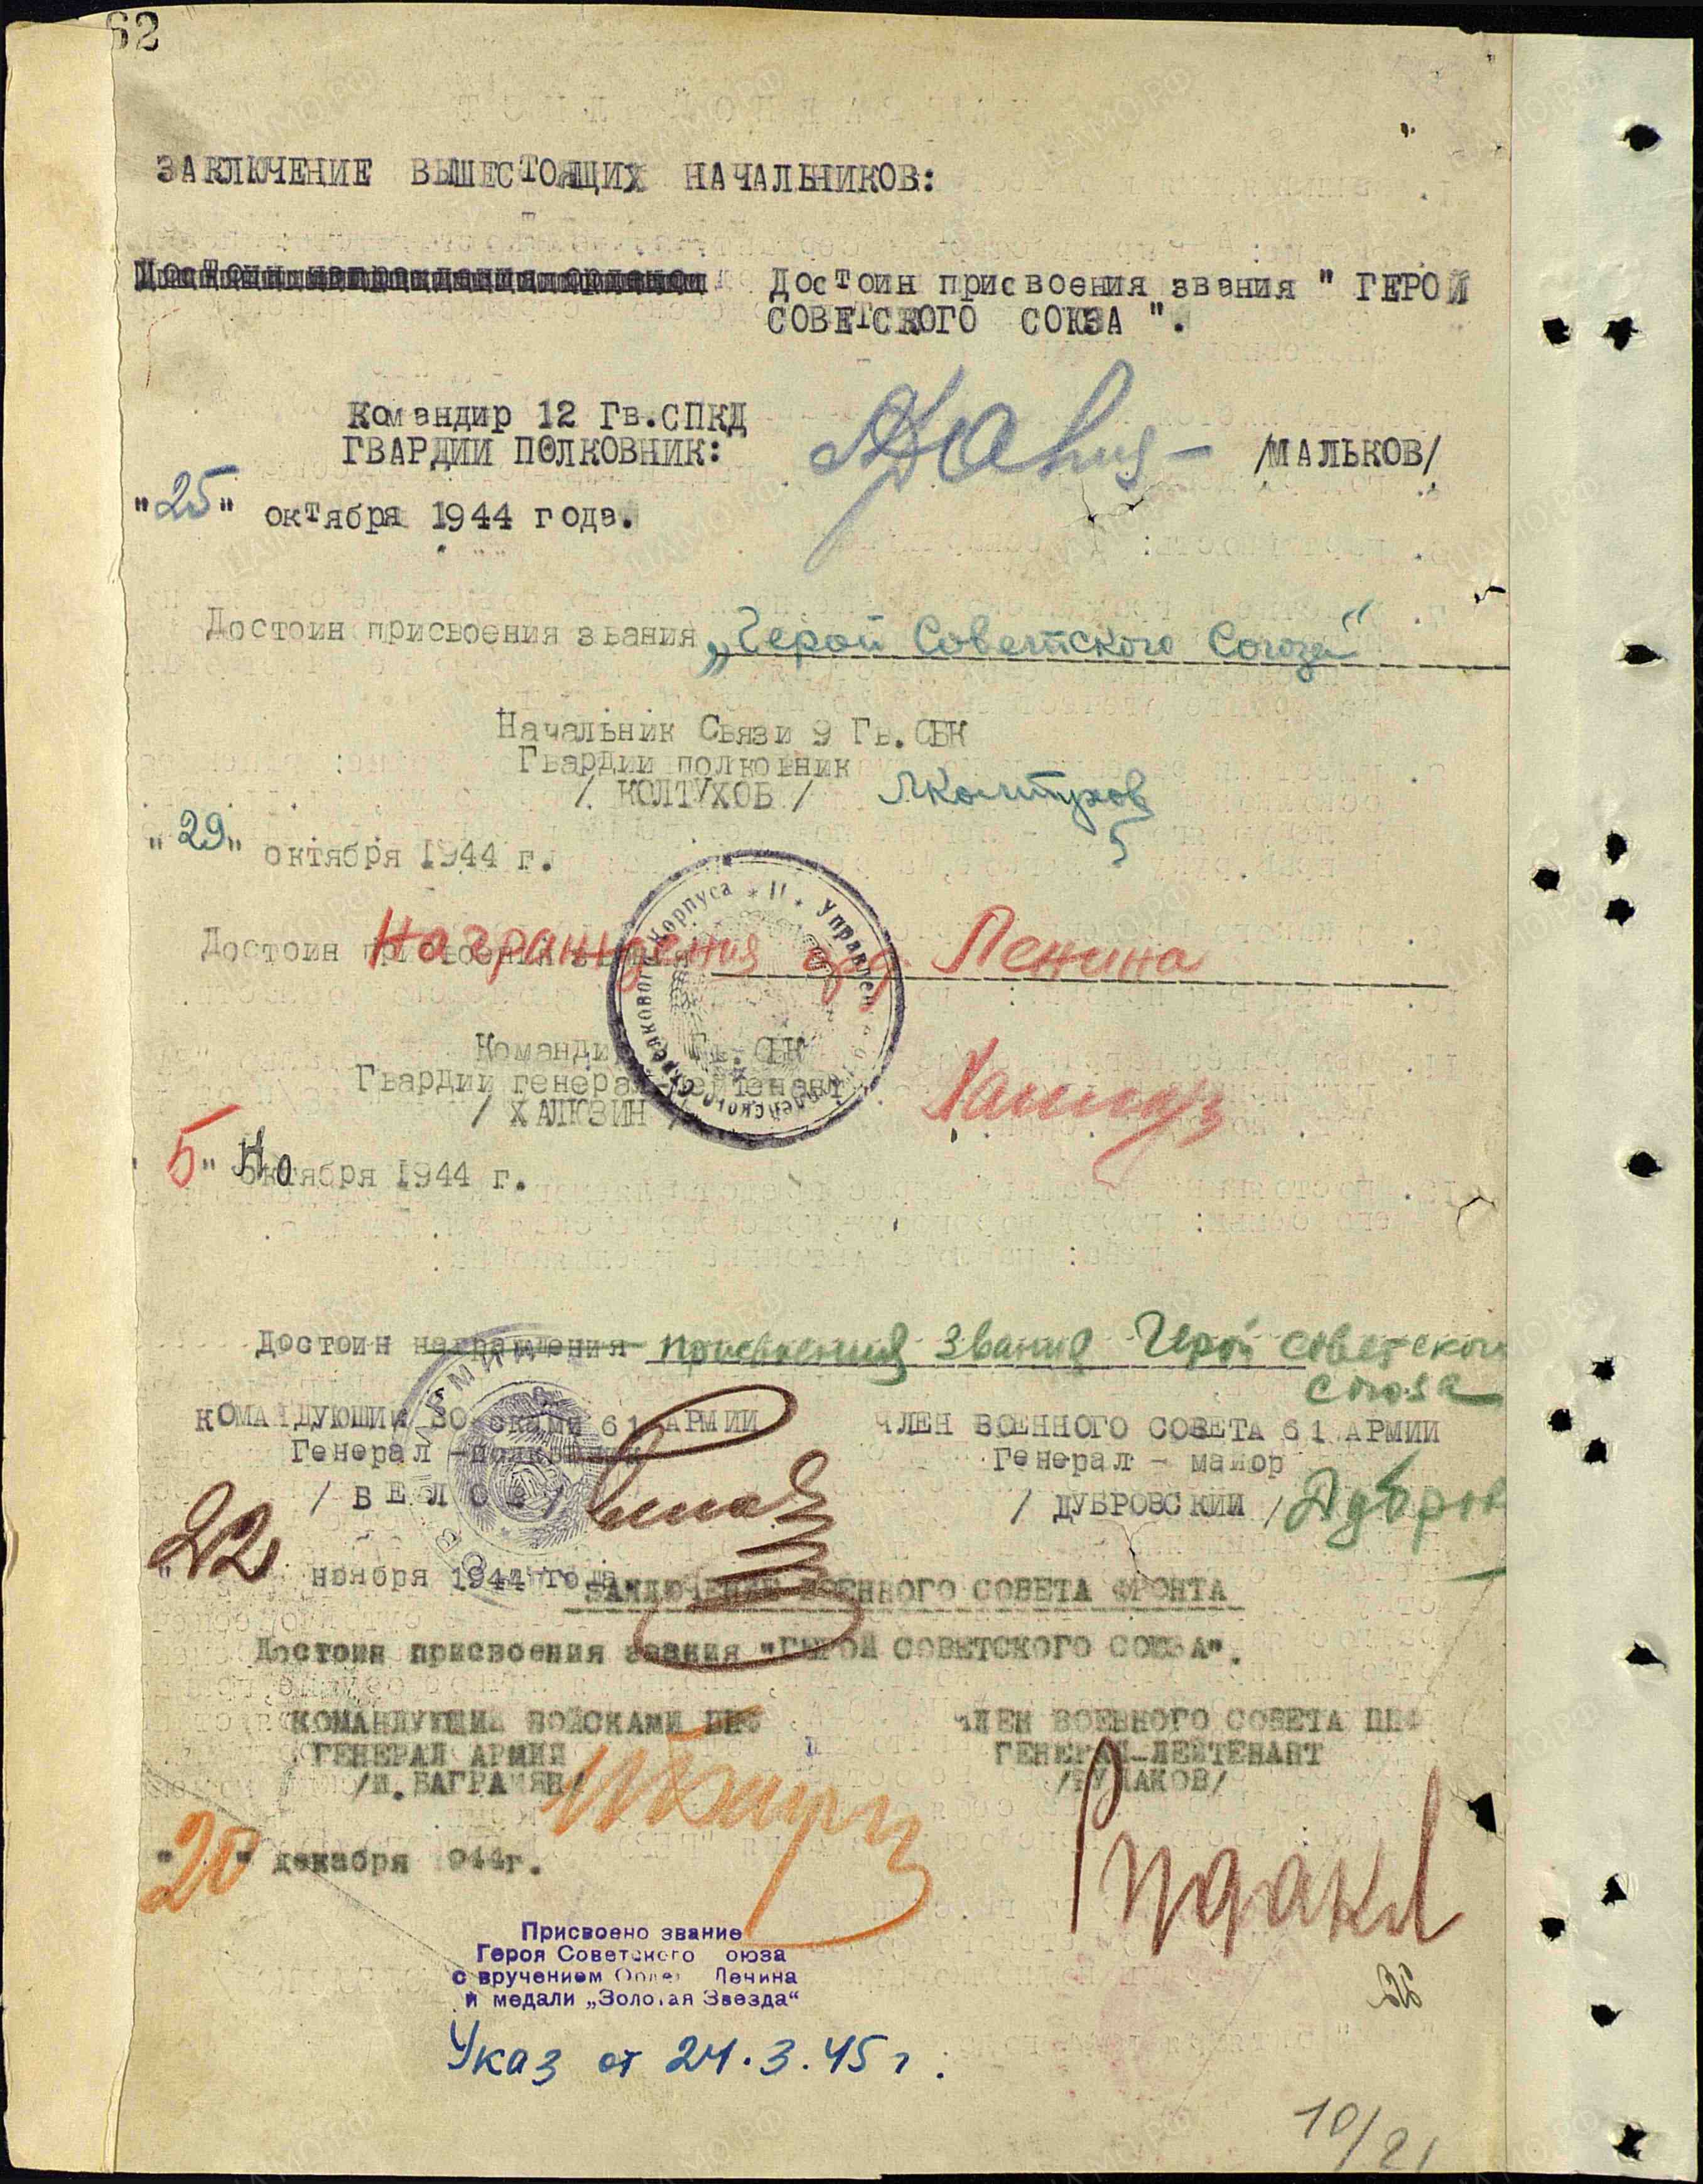 62
ЗАКЛЮЧЕНИЕ ВЫШЕСТОЯЩИХ НАЧАЛЬНИКОВ:
Достоин присвоения звания " ГЕРОЙ
СОВЕТСКОГО СОЮЗА ".
Командир 12 Гв.СПКД
ГВАРДИИ ПОЛКОВНИК: /МАЛЬКОВ/
"25" октября 1944 года.
Достоин присвоения звания „Герой Советского Союза"
Начальник Связи 9 Гв. СБК
Гвардии полковник
/ КОЛТУХОВ / Колтухов
"29" октября 1944 г.
Достоин присвоения звания Награждения орд. Ленина
Командир Гв. СБК
Гвардии генерал-лейтенант
/ ХАЛЮЗИН /
5" Но октября 1944 г.
Достоин награждения присвоения звания Герой Советского
Союза
КОМАНДУЮЩИЙ ВОЙСКАМИ 61 АРМИИ ЧЛЕН ВОЕННОГО СОВЕТА 61 АРМИИ
Генерал -полковник Генерал - майор
/ БЕЛОВ / / ДУБРОВСКИЙ /
"22 ноября 1944 года
ЗАКЛЮЧЕНИЕ ВОЕННОГО СОВЕТА ФРОНТА
Достоин присвоения звания "ГЕРОЙ СОВЕТСКОГО СОЮЗА".
КОМАНДУЮЩИЙ ВОЙСКАМИ ЧЛЕН ВОЕННОГО СОВЕТА
ГЕНЕРАЛ АРМИИ ГЕНЕРАЛ-ЛЕЙТЕНАНТ
/И. БАГРАМЯН/ /РУДАКОВ/
"20" декабря 1944г.
Присвоено звание
Героя Советского оюза
с вручением Орден Ленина
и медали „Золотая Звезда“
Указ от 24.3.45 г.
10/21